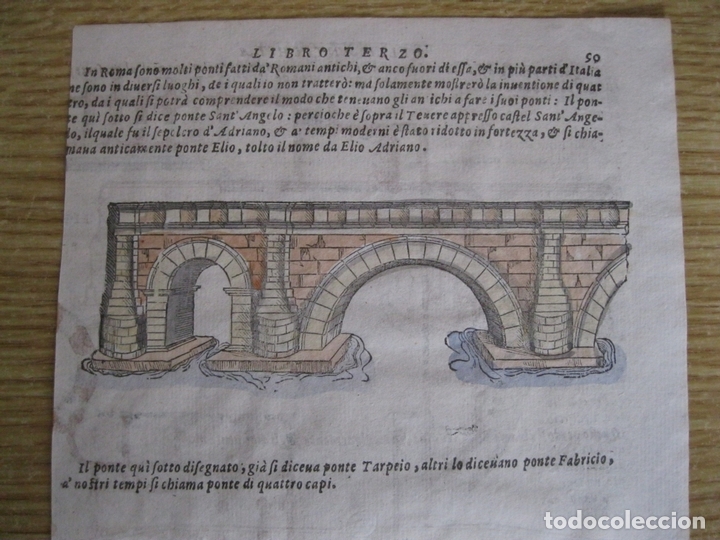 LIBRO TERZO.
50
In Roma sono molti ponti fatti da' Romani antichi, & anco fuori di essa, & in più parti d'Italia
ne sono in diversi luoghi, de i quali io non tratterò: ma solamente mostrerò la inuentione di quat
tro, da i quali si potrà comprendere il modo che teneuano gli antichi a fare i suoi ponti: Il pon-
te qui sotto si dice ponte Sant'Angelo: percioche è sopra il Teuere appresso castel Sant'Ange-
lo, il quale fu il sepolcro d'Adriano, & a' tempi moderni è stato ridotto in fortezza, & si chia-
maua anticamente ponte Elio, tolto il nome da Elio Adriano.
Il ponte quì sotto disegnato, già si diceua ponte Tarpeio, altri lo diceuano ponte Fabricio,
a' nostri tempi si chiama ponte di quattro capi.
todocoleccion.net